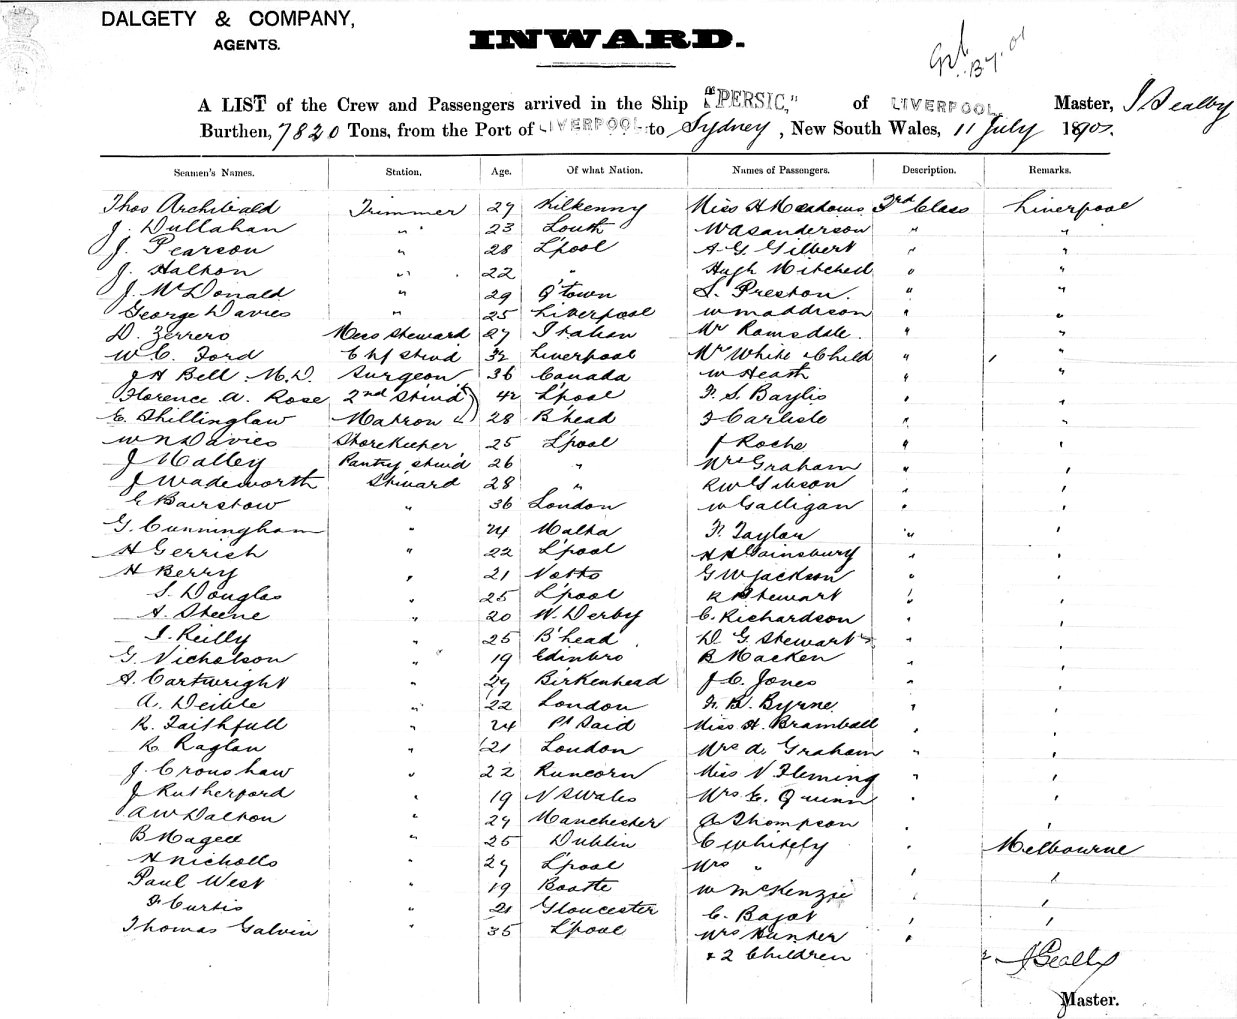 DALGETY & COMPANY,
AGENTS.
INWARD.
A LIST of the Crew and Passengers arrived in the Ship "PERSIC," of LIVERPOOL, Master, J Sealby
Burthen, 7820 Tons, from the Port of LIVERPOOL to Sydney, New South Wales, 11 July 1901.
Seamen's Names. Station. Age. Of what Nation. Names of Passengers. Description. Remarks.
Thos Archibald Trimmer 27 Kilkenny Miss H Meadows 3rd Class Liverpool
J. Dullahan " 23 Louth W A Sanderson " "
J. Pearson " 28 L'pool A. G. Gilbert " "
J. Halton " 22 " Hugh Mitchell " "
J. McDonald " 29 Q'town S. Preston. " "
George Davies " 25 Liverpool W Maddison " "
D. Zerrero Mess Steward 27 Italian Mr Ramsdale " "
W. C. Ford 32 Liverpool Mr White & Child " "
J H Bell. M.D. Surgeon 36 Canada W Heath " "
Florence A. Rose 2nd Stwd 42 L'pool F. S. Baylis " "
E. Shillinglaw Matron 28 B'head J Carlisle " "
W N Davies Storekeeper 25 L'pool J Roche " "
J Malley Pantry Stwd 26 " Mrs Graham " "
J Wadeworth Steward 28 " R W Gibson " "
E Bairstow " 36 London W Galligan " "
G. Cunningham " 24 Malta F. Taylor " "
H Gerrish " 22 L'pool H H Gainsbury " "
H Berry " 21 Notts G W Jackson " "
S. Douglas " 25 L'pool R Stewart " "
A. Steene " 20 W. Derby C. Richardson " "
J. Reilly " 25 B'head D. G. Stewart " "
G. Nicholson " 19 Edinbro B Macken " "
A. Cartwright " 29 Birkenhead J. C. Jones " "
A. Deible " 22 London F. B. Byrne " "
R. Faithfull " 24 Pt Said Miss H. Bramball " "
R. Raglan " 21 London Mrs A. Graham " "
J. Cronshaw " 22 Runcorn Miss N Fleming " "
J Rutherford " 19 N S Wales Mrs E. Quinn " "
A W Dalton " 29 Manchester A Thompson " "
B Magee " 25 Dublin C Whitely " Melbourne
H Nicholls " 29 L'pool Mrs " " "
Paul West " 19 Bootle W McKenzie " "
F Curtis " 21 Gloucester C. Bagot " "
Thomas Galvin " 35 L'pool Mrs Hunter "
& 2 Children
J Sealby
Master.